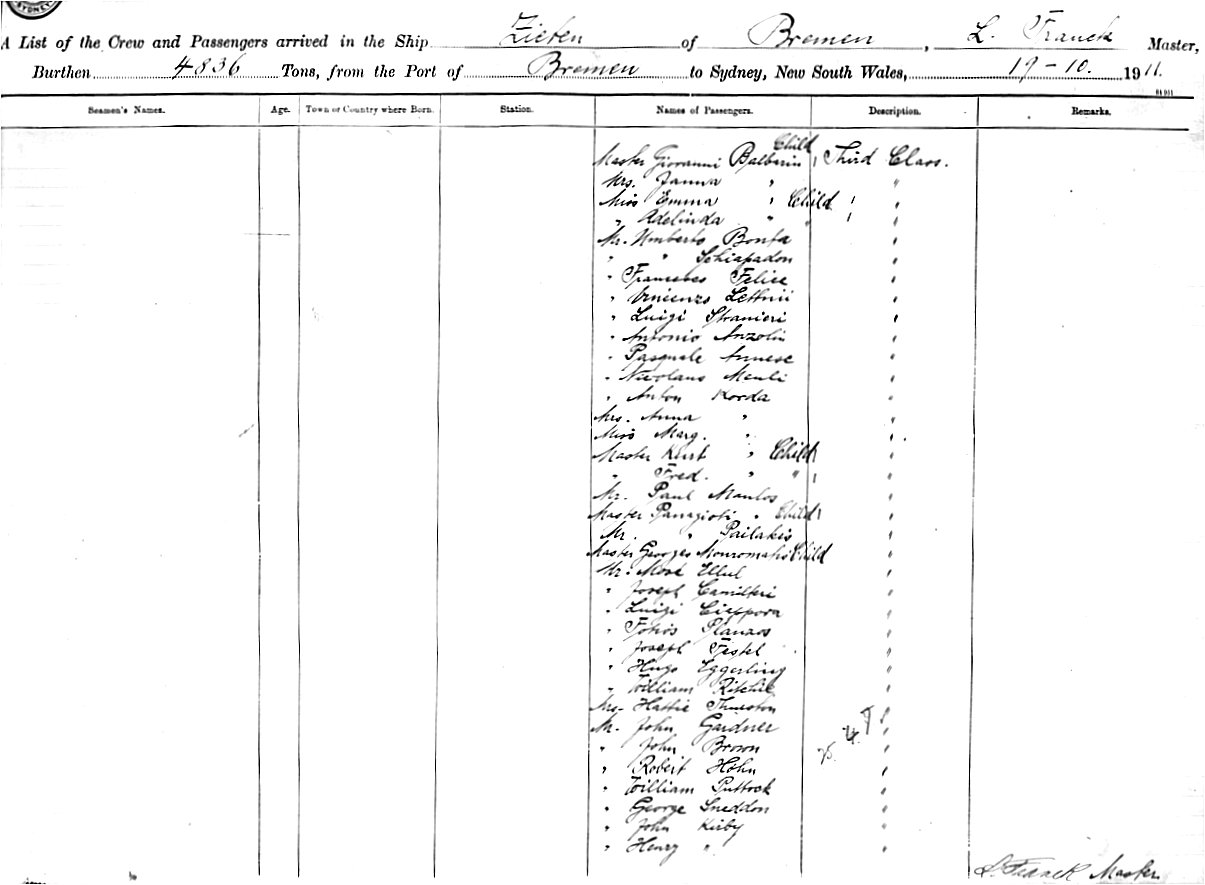 SYDNEY
A List of the Crew and Passengers arrived in the Ship Zieten of Bremen, L. Franck Master,
Burthen 4836 Tons, from the Port of Bremen to Sydney, New South Wales, 19-10. 1911.
Seamen's Names. Age. Town or Country where Born. Station. Names of Passengers. Description. Remarks.
Child
Master Giovanni Balberin Third Class.
Mrs. Janna " "
Miss Emma " Child "
" Adelinda " " "
Mr. Umberto Bonfa "
" " Schiapadon "
" Francesco Felice "
" Vincenzo "
" Luigi Stranieri "
" Antonio Anzolin "
" Pasquale Annese "
" Nicolaus Menli "
" Anton Korda "
Mrs. Anna " "
Miss Marg. " "
Master Kurt " Child "
" Fred. " " "
Mr. Paul Manlos "
Master Panagioti " Child "
Mr. " Pailakis "
Master Georges Child "
Mr. Mosé Ellul "
" Joseph Camilleri "
" Luigi Ciappora "
" Fotios Planzos "
" Joseph Testel "
" Hugo Eggerling "
" William Ritchie "
Mrs. Hattie Thurston "
Mr. John Gardner "
" John Brown "
" Robert Höhn "
" William Puttock "
" George Sneddon "
" John Kirby "
" Henry " "
L. Franck Master.